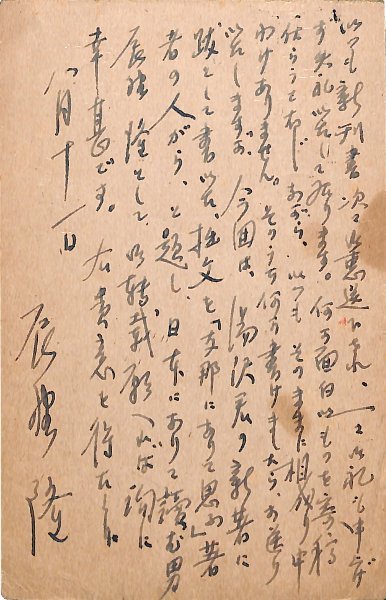 いつも新刊書次々御恵送下され、一々御礼も申さ
ず失礼致して居ります。何か面白いものを寄稿
仕らうと存じながら、いつもそのままに相成り申
わけありません。そのうち何か書けましたら、お送り
致しますが、今回は、湯沢君の新著に
跋として書いた拙文を「支那にありて思ふ」著
者の人がら、と題し、日本にありて読む男
辰野隆として、御転載願へれば洵に
幸甚です。右貴意を得たく
八月十一日
辰野隆